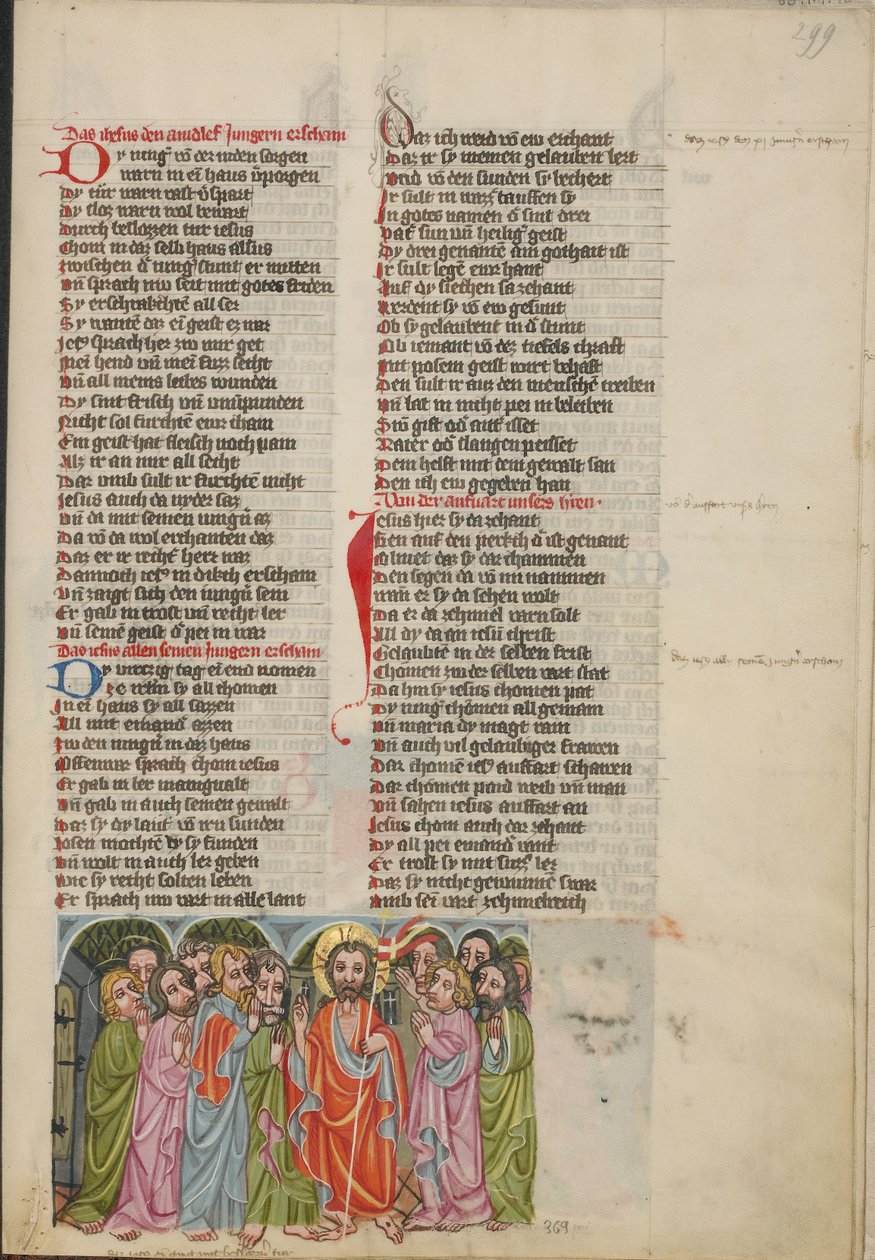 299
Das ihesus den aindlef Jungern erscham
Dy iung͛ vō der iuden sorgen
warn in ei haus v͛porgen
Dy tür warn vast v͛spart
Dy sloz warn wol bewart
Durch beslozzen tur iesus
Chom in daz selb haus alsus
Zwischen d͛ iung͛ stunt er mitten
Vn̄ sprach nu seit mit gotes friden
Sy erschrakchtē all ser
Sy wantē daz ei geist ez war
Jes͛ sprach her zw mir get
Mein hend vn̄ mei fuzz secht
Vn̄ all meins leibs wunden
Dy sint frisch vn̄ vnu͛punden
Nicht sol furchten eur cham
Ein geist hat fleisch noch pain
Alz ir an mir all secht
Dar vmb sult ir furchtē nicht
Jesus auch da nyder saz
Vn̄ da mit seinen iung͛n az
Da vō da wol erchanten daz
Daz er ir recht͛ herr waz
Dannoch ies͛ in dikch erscham
Vn̄ zaigt sich den iung͛n sein
Er gab in trost vn̄ recht ler
Vn̄ seinē geist d͛ pei in war
Das iesus allen seinen Jungern erscham
Dy virczig tag ei end nomen
Ze waren sy all chomen
In ei haus sy all sazzen
All mit einand͛ azzen
Zw den iung͛n in daz haus
Offenwar sprach chom iesus
Er gab in ler manigualt
Vn̄ gab in auch seinen gewalt
Daz sy dy laut vō irn sunden
Losen mochtē dy sy funden
Vn̄ wolt in auch ler geben
Wie sy recht solten leben
Er sprach nu vart in alle lant
Daz ich werd vō ew erchant
Daz ir sy meinen gelauben lert
Vnd vō den sunden sy bechert
Ir sult in wazz͛ tauffen sy
In gotes namen d͛ sint drei
Vat͛ sun vn̄ heilig͛ geist
Dy drei genantē ain gothait ist
Ir sult legē eur hant
Auf dy siechen sa zehant
Werdent sy vō ew gesunt
Ob sy gelaubent in d͛ stunt
Ob iemant vō dez tiefels chraft
Mit posem geist wirt behaft
Den sult ir auz den menschē treiben
Vn̄ lat in nicht pei in beleiben
Swē gift od͛ ant͛ isset
Nater od͛ slangen peisset
Dem helft mit dem gewalt san
Den ich ew gegeben han
Von der aufuart vnsers h͛ren
Jesus hiez sy da zehant
Gen auf den perkch d͛ ist genant
Oliuet daz sy dar chammen
Den segen da vō im nammen
Wan er sy da sehen wolt
Da er da ze himel varn solt
All dy da an iesu christ
Gelaubtē in der selben frist
Chomen zw der selben vart stat
Da hin sy iesus chomen pat
Dy iung͛ chomen all gemain
Vn̄ maria dy magt rain
Vn̄ auch vil gelaubiger frawen
Dar chomē ies͛ auffart schawen
Dar chomen paid weib vn̄ man
Vn̄ sahen iesus auffart an
Jesus chom auch dar zehant
Dy all pei einand͛ vant
Er trost sy mit suzz͛ ler
Daz sy nicht gewunnē swar
Vmb sei vart ze himelreich
369